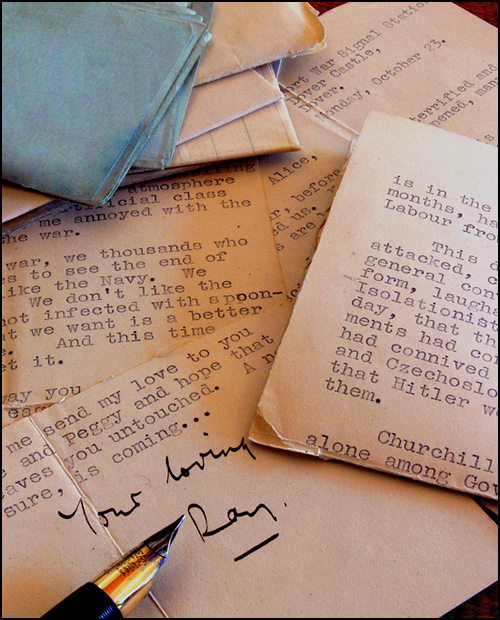 ort War Signal Station,
over Castle,
over.
onday, October 23.
terrified and
pened, man
Alice,
, before
s are
atmosphere
icial class
me annoyed with the
the war.
war, we thousands who
es to see the end of
like the Navy. We
We don't like the
not infected with spoon-
at we want is a better
e. And this time
et it.
way you
eag
me send my love to you
e and Peggy and hope that
eaves you untouched. A n
sure, is coming...
Your loving
Ray.
is in the
months, ha
Labour fro
This d
attacked, c
general con
form, laugha
Isolationist
day, that th
ments had co
had connived
and Czechoslo
that Hitler w
them.
Churchill
alone among Gov